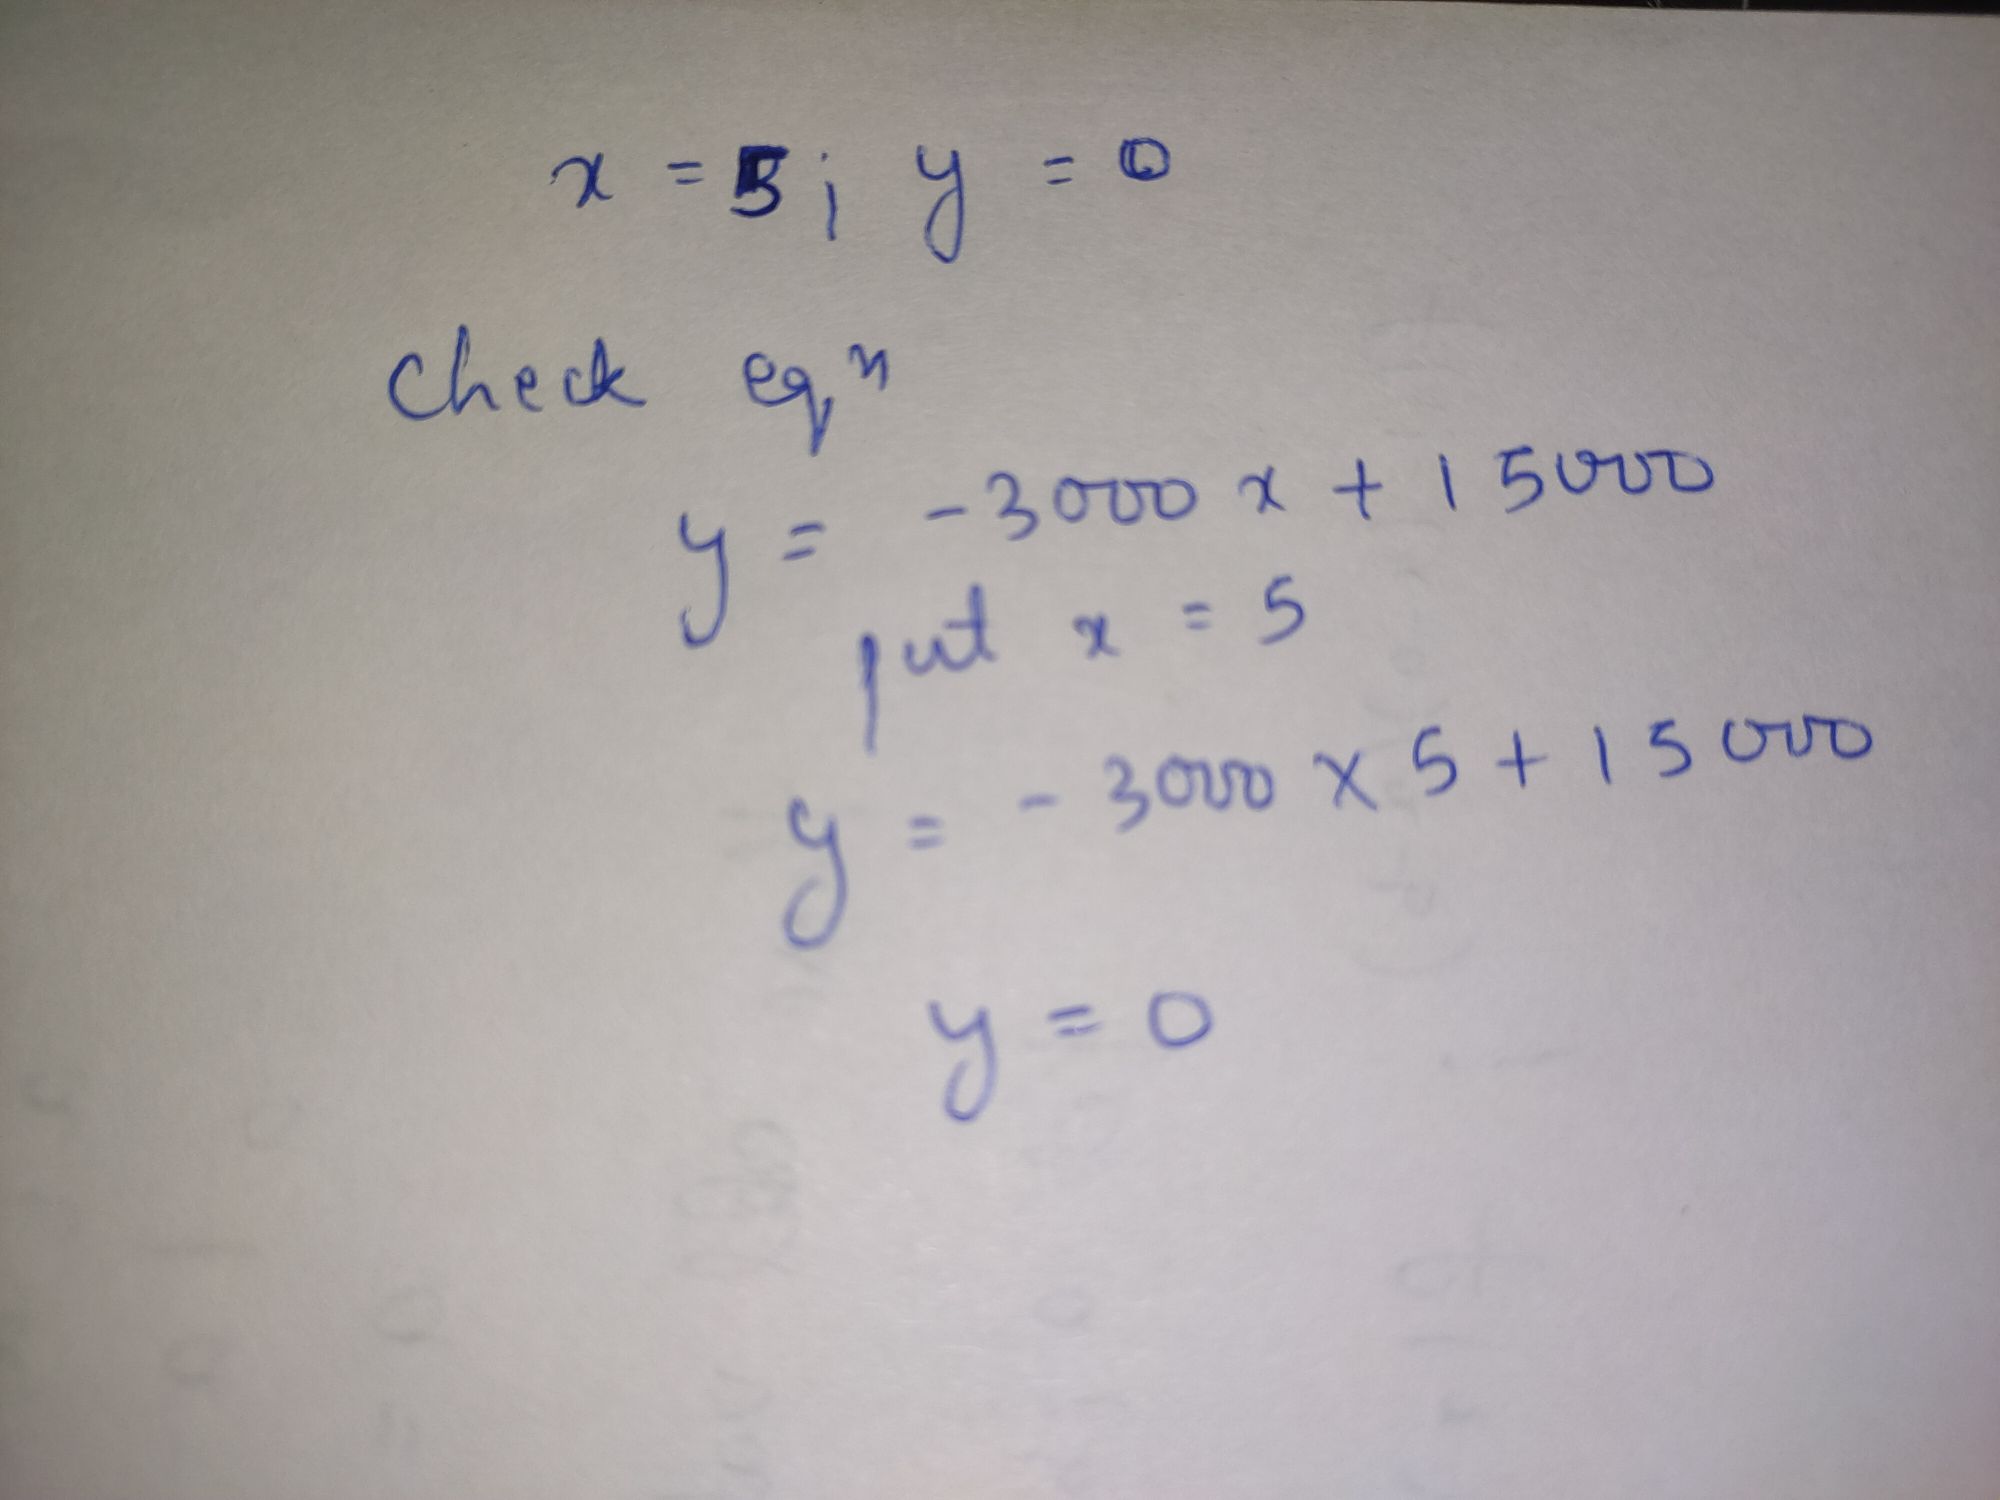 x = 5; y = 0
Check eqⁿ
y = -3000 x + 15000
put x = 5
y = - 3000 × 5 + 15000
y = 0